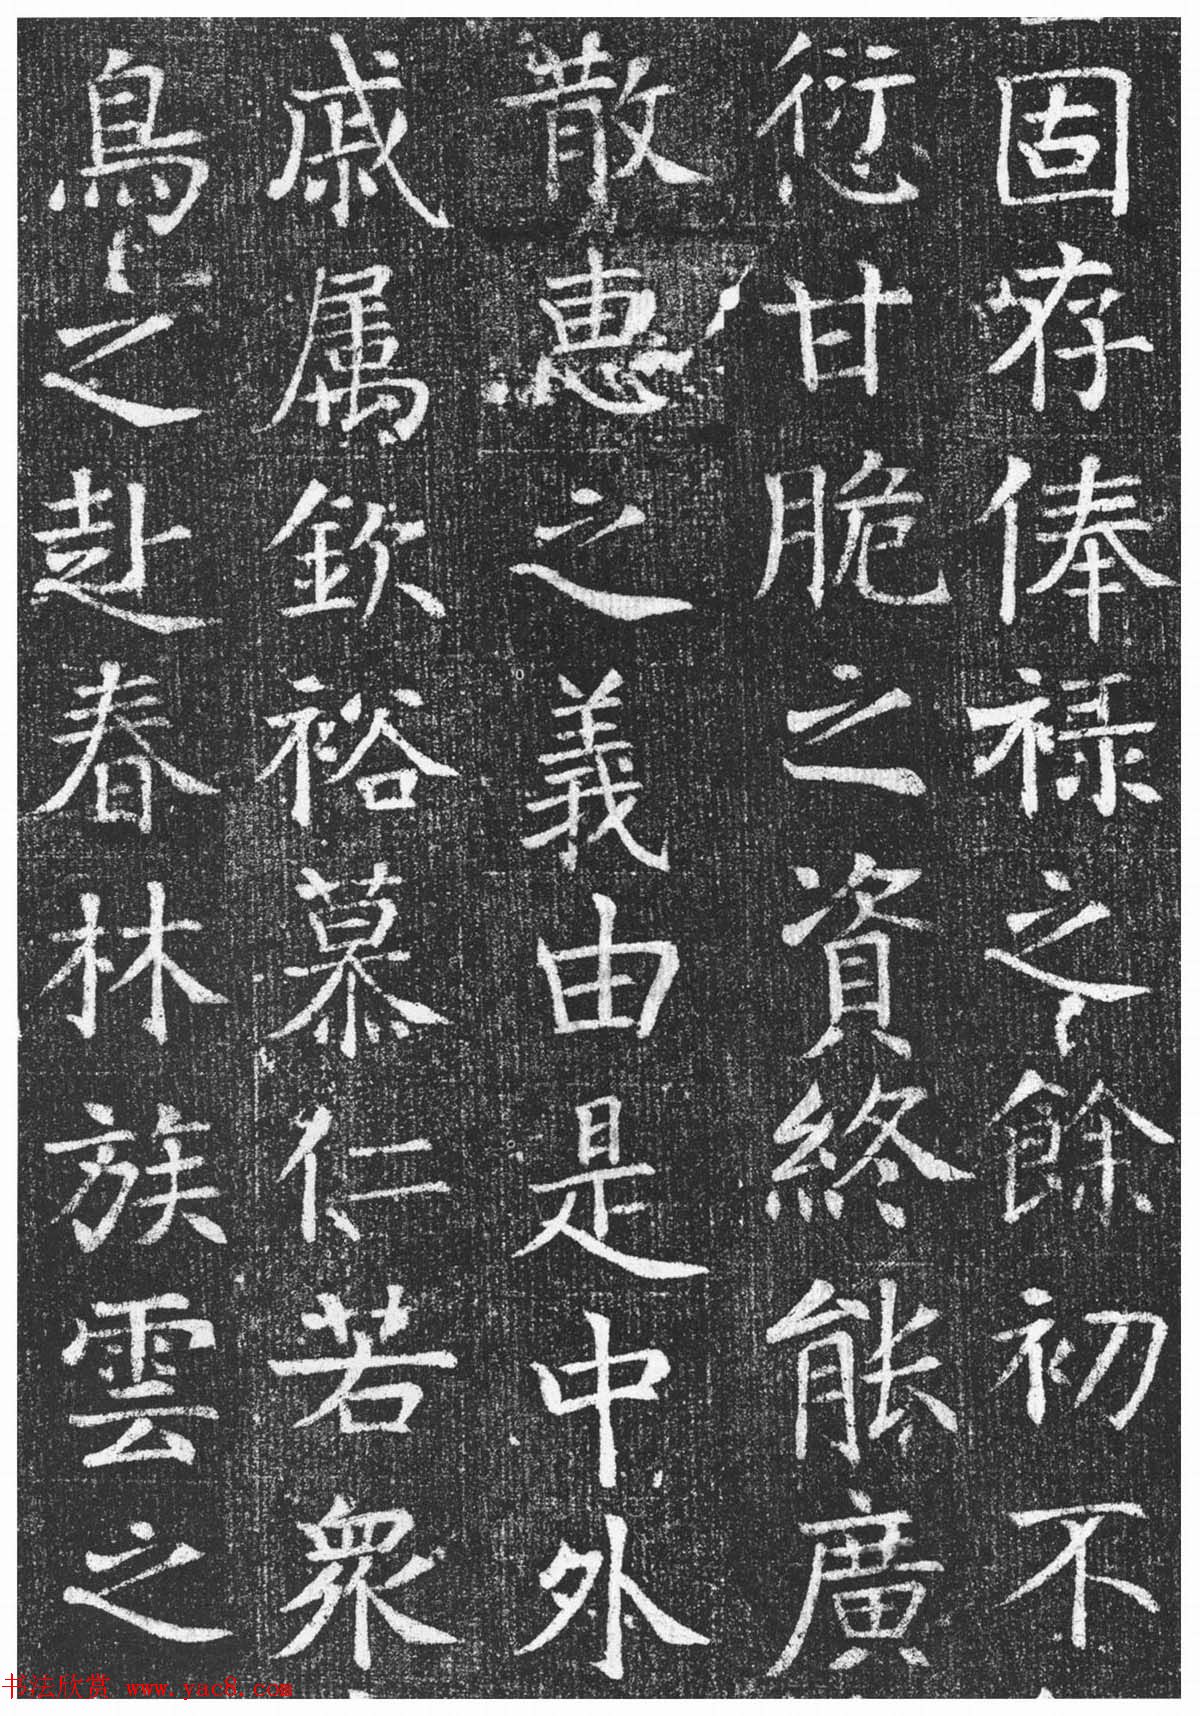 固存俸禄之餘初不
衍甘脆之資終能廣
散惠之義由是中外
戚属欽裕慕仁若衆
鳥之赴春林族雲之
书法欣赏 www.yac8.com